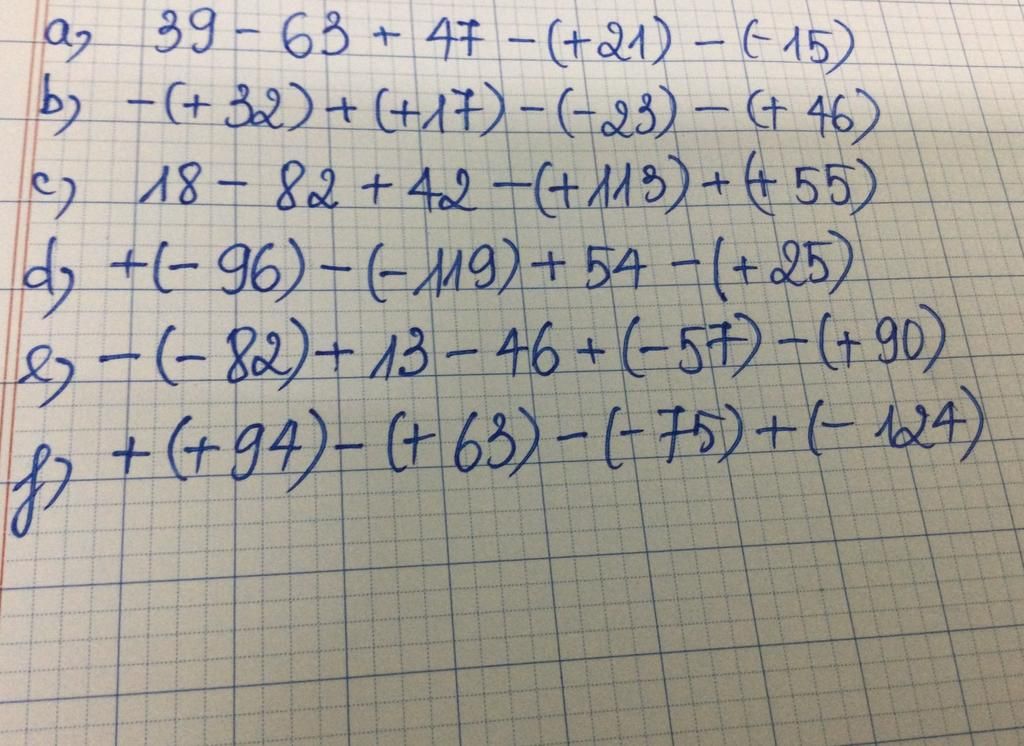 a) 39 - 63 + 47 - (+21) - (-15)
b) -(+32) + (+17) - (-23) - (+46)
c) 18 - 82 + 42 - (+113) + (+55)
d) +(-96) - (-119) + 54 - (+25)
e) -(-82) + 13 - 46 + (-57) - (+90)
f) +(+94) - (+63) - (-75) + (-124)